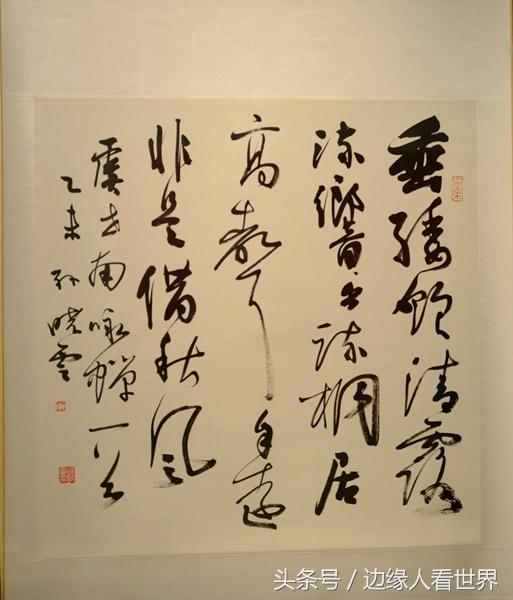 垂緌飲清露
流響出疏桐居
高聲自遠
非是借秋風
虞世南咏蟬一首
乙未 孫曉雲
头条号 / 边缘人看世界